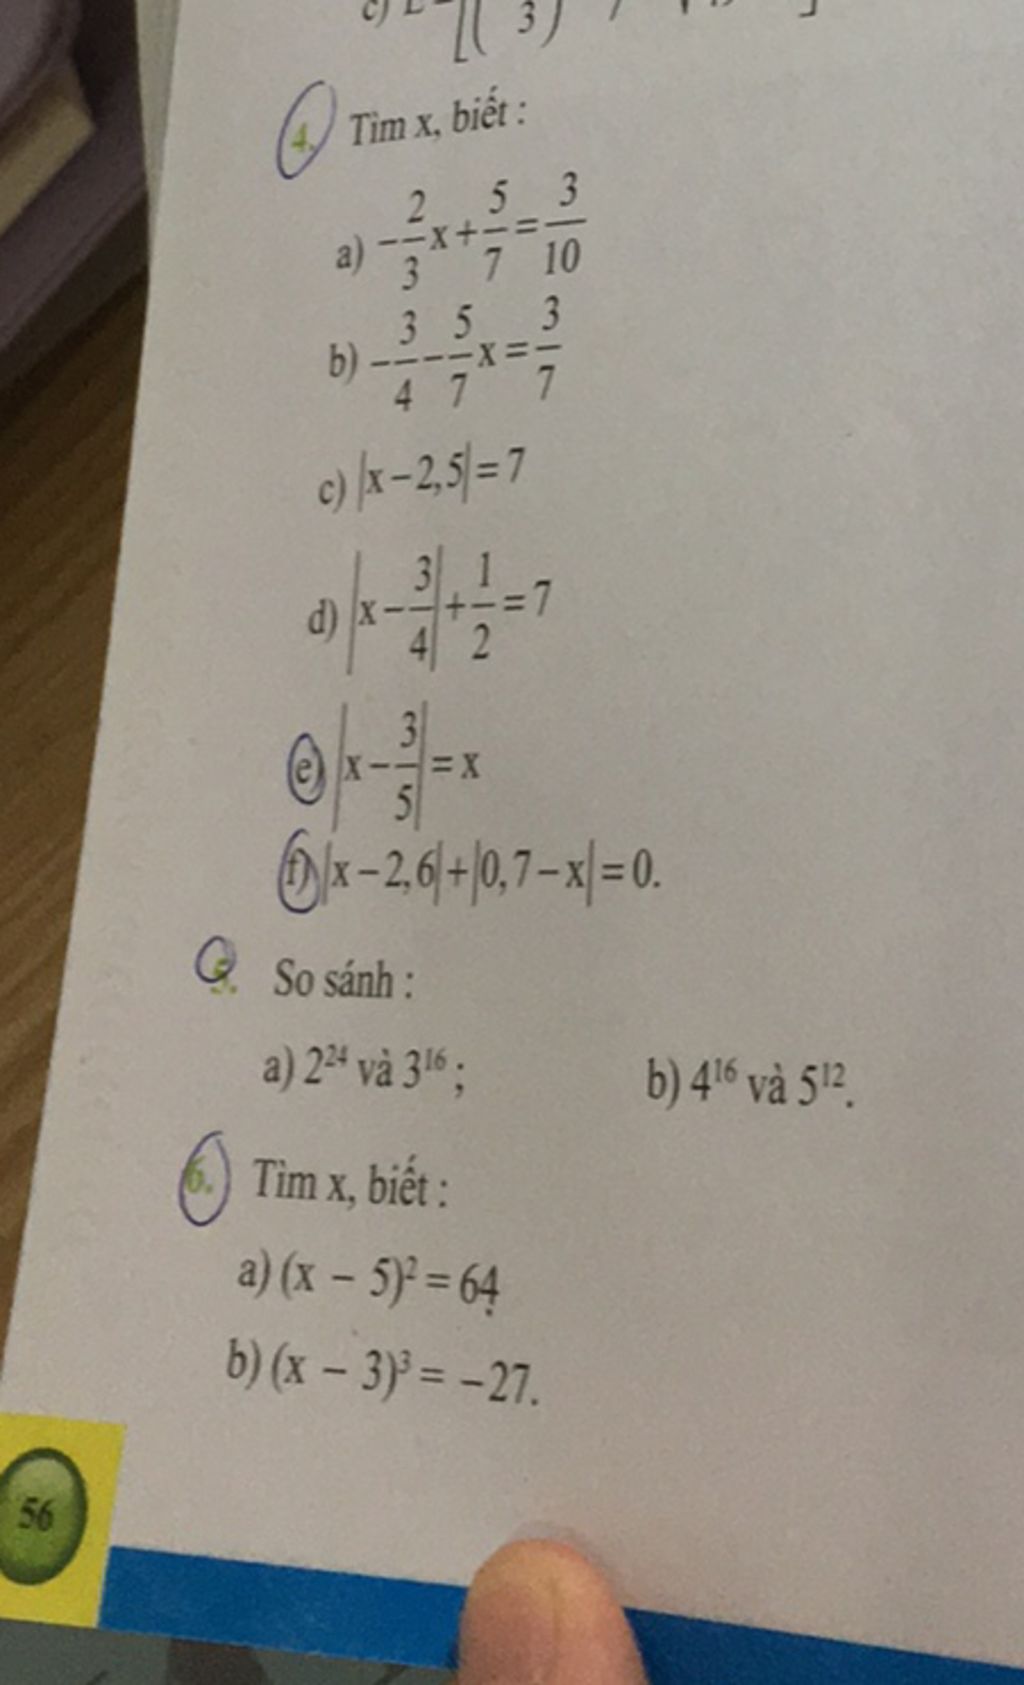 3
4. Tìm x, biết :
a) -2/3 x + 5/7 = 3/10
b) -3/4 - 5/7 x = 3/7
c) |x - 2,5| = 7
d) |x - 3/4| + 1/2 = 7
e) |x - 3/5| = x
f) |x - 2,6| + |0,7 - x| = 0.
5. So sánh :
a) 2²⁴ và 3¹⁶ ; b) 4¹⁶ và 5¹².
6. Tìm x, biết :
a) (x - 5)² = 64
b) (x - 3)³ = -27.
56